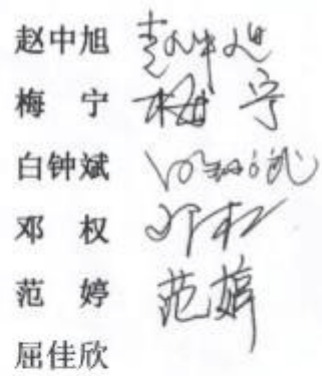 赵中旭 赵中旭
梅 宁 梅宁
白钟斌 白钟斌
邓 权 邓权
范 婷 范婷
屈佳欣